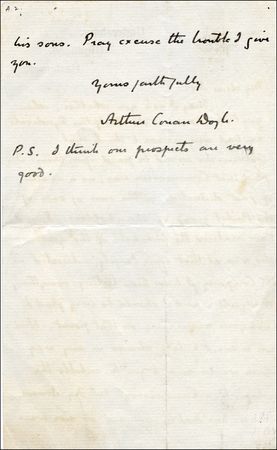 his sons. Pray excuse the trouble I give
you.
Yours faithfully
Arthur Conan Doyle.
P.S. I think our prospects are very
good.